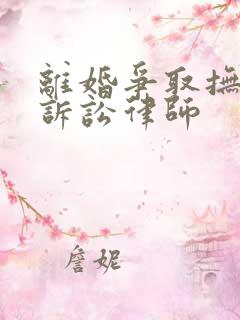 離婚爭取撫
訴訟律師
詹妮